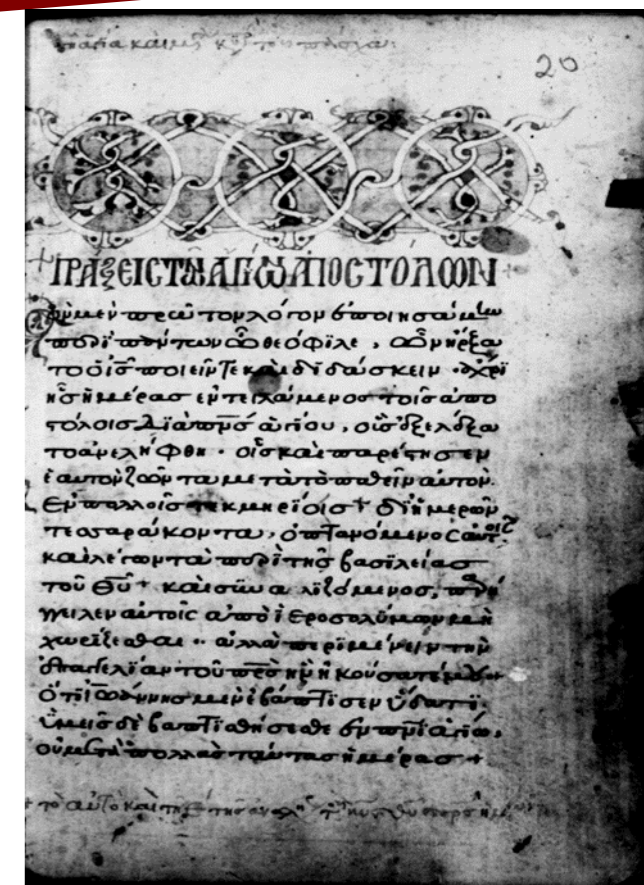 ἁγία καὶ μεγ κυρ τοῦ πάσχα
20
+ ΠΡΑΞΕΙΣ ΤΩΝ ΑΓΙΩΝ ΑΠΟΣΤΟΛΩΝ +
Τὸν μὲν πρῶτον λόγον ἐποιησάμην
περὶ πάντων ὦ θεόφιλε, ὧν ἤρξα
το ὁ ἰς ποιεῖν τε καὶ διδάσκειν · ἄχρι
ἧς ἡμέρας ἐντειλάμενος τοῖς ἀπο
στόλοις διὰ πνς ἁγίου, οὓς ἐξελέξα
το ἀνελήφθη · οἷς καὶ παρέστησεν
ἑαυτὸν ζῶντα μετὰ τὸ παθεῖν αὐτὸν.
Ἐν πολλοῖς τεκμηρίοις + δι ἡμερῶν
τεσσαράκοντα, ὀπτανόμενος αὐτοῖς
καὶ λέγων τὰ περὶ τῆς βασιλείας
τοῦ θυ + καὶ συναλιζόμενος, παρή
γγειλεν αὐτοῖς ἀπὸ ἱεροσολύμων μὴ
χωρίζεσθαι ·· ἀλλὰ περιμένειν τὴν
ἐπαγγελίαν τοῦ πρς ἣν ἠκούσατέ μου +
ὅτι ἰωάννης μὲν ἐβάπτισεν ὕδατι.
ὑμεῖς δὲ βαπτισθήσεσθε ἐν πνι ἁγίω,
οὐ μετὰ πολλὰς ταύτας ἡμέρας +
+ τὸ αὐτὸ καὶ τῆ